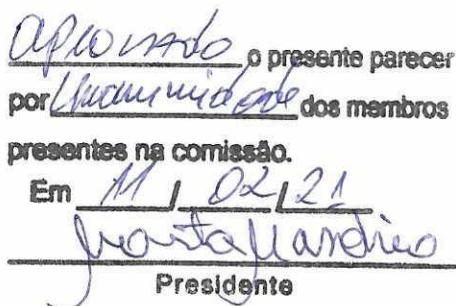 aprovado o presente parecer
por Unanimidade dos membros
presentes na comissão.
Em 11 / 02 / 21
Presidente